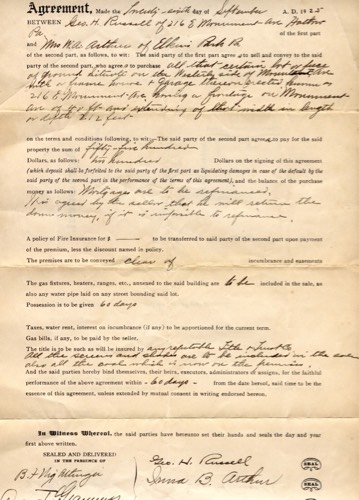 Agreement, Made the Twenty-sixth day of September A. D. 1925
BETWEEN Geo. H. Russell of 216 E Monument Ave Hatboro
Pa of the first part
and Mrs Arthur of Elkins Park Pa
of the second part, as follows, to wit: The said party of the first part agree to sell and convey to the said
party of the second part, who agree to purchase all that certain lot or piece
of ground situate on the side of Monument Ave
with frame house & garage thereon erected known as
216 E Monument Ave having a frontage on Monument
Ave of ft and extending of that width in length
or depth ft
on the terms and conditions following, to wit: The said party of the second part agree to pay for the said
property the sum of fifty-five hundred
Dollars as follows: two hundred Dollars on the signing of this agreement
(which deposit shall be forfeited to the said party of the first part as liquidating damages in case of the default by the
said party of the second part in the performance of the terms of this agreement), and the balance of the purchase
money as follows: Mortgage are to be refinanced,
It is agreed by the seller that he will return the
down money, if it is impossible to refinance.
A policy of Fire Insurance for $ — to be transferred to said party of the second part upon payment
of the premium, less the discount named in policy.
The premises are to be conveyed clear of incumbrance and easements
The gas fixtures, heaters, ranges, etc., annexed to the said building are to be included in the sale, as
also any water pipe laid on any street bounding said lot.
Possession is to be given 60 days
Taxes, water rent, interest on incumbrance (if any) to be apportioned for the current term.
Gas bills, if any, to be paid by the seller.
The title is to be such as will be insured by any reputable Title & Trust Co
All the screens and shades are to be included in the sale
also all the coal which is now on the premises.
And the said parties hereby bind themselves, their heirs, executors, administrators or assigns, for the faithful
performance of the above agreement within 60 days from the date hereof, said time to be the
essence of this agreement, unless extended by mutual consent in writing endorsed hereon.
In Witness Whereof, the said parties have hereunto set their hands and seals the day and year
first above written.
SEALED AND DELIVERED
IN THE PRESENCE OF
Geo. H. Russell SEAL
B. F. Arthur SEAL